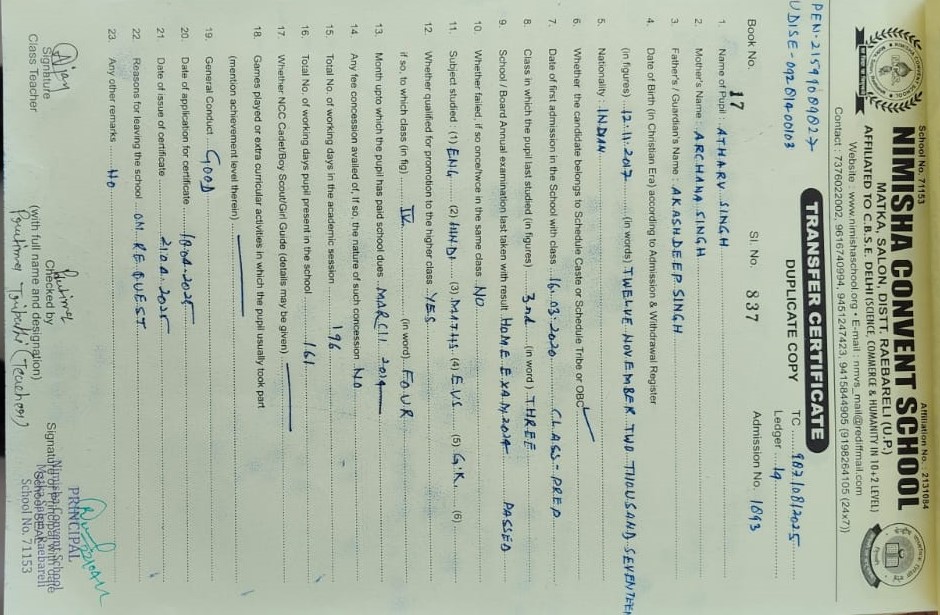 School No. 71153
Affiliation No. : 2131084
NIMISHA CONVENT SCHOOL
MATKA, SALON, DISTT. RAEBARELI (U.P.)
AFFILIATED TO C.B.S.E. DELHI (SCIENCE, COMMERCE & HUMANITY IN 10+2 LEVEL)
Website : www.nimishaschool.org • E-mail : nmvs_mail@rediffmail.com
Contact : 7376022002, 9616740994, 9451247423, 9415844905 (9198264105 (24x7))
PEN-21591089827
UDISE-09281400103
TRANSFER CERTIFICATE
DUPLICATE COPY
TC 987/08/2025
Ledger 19
Book No. 17
Sl. No. 837
Admission No. 1893
1. Name of Pupil : ATHARV SINGH
2. Mother's Name : ARCHANA SINGH
3. Father's / Guardian's Name : AKASHDEEP SINGH
4. Date of Birth (in Christian Era) according to Admission & Withdrawal Register
(in figures) 12.11.2017 (in words) TWELVE NOVEMBER TWO THOUSAND SEVENTEEN
5. Nationality : INDIAN
6. Whether the candidate belongs to Schedule Caste or Schedule Tribe or OBC
7. Date of first admission in the School with class 16.03.2020 CLASS-PREP
8. Class in which the pupil last studied (in figures) 3rd (in word) THREE
9. School / Board Annual examination last taken with result HOME EXAM, 2024 PASSED
10. Whether failed, if so once/twice in the same class NO
11. Subject studied : (1) ENG (2) HINDI (3) MATHS (4) E.VS (5) G.K. (6)
12. Whether qualified for promotion to the higher class YES
if so, to which class (in fig) IV (in word) FOUR
13. Month upto which the pupil has paid school dues MARCH 2024
14. Any fee concession availed of, If so, the nature of such concession NO
15. Total No. of working days in the academic session 196
16. Total No. of working days pupil present in the school 161
17. Whether NCC Cadet/Boy Scout/Girl Guide (details may be given)
18. Games played or extra curricular activities in which the pupil usually took part
(mention achievement level therein)
19. General Conduct GOOD
20. Date of application for certificate 18.04.2025
21. Date of issue of certificate 21.04.2025
22. Reasons for leaving the school ON REQUEST
23. Any other remarks NO
Signature
Class Teacher
Checked by
(with full name and designation)
(Teacher)
PRINCIPAL
Nimisha Convent School
School No. 71153